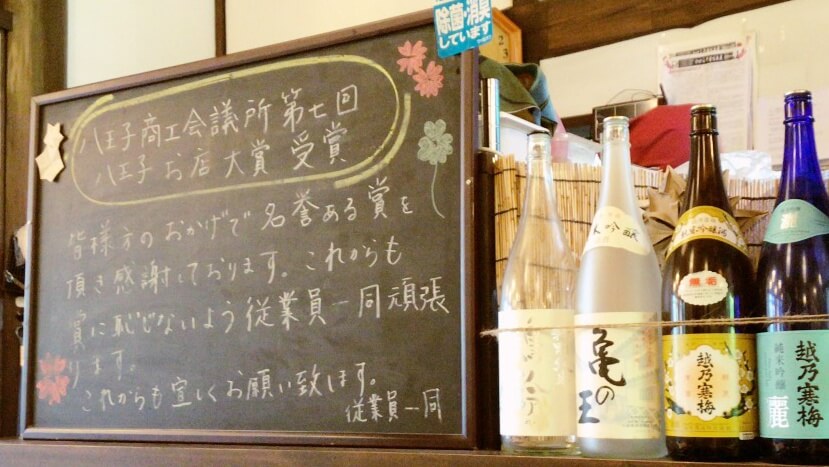 除菌・消臭
しています
八王子商工会議所 第七回
八王子 お店 大賞 受賞
皆様方のおかげで名誉ある賞を
頂き感謝しております。これからも
賞に恥じないよう従業員一同頑張
ります。
これからも宜しくお願い致します。
従業員一同
大吟醸
亀の王
越乃寒梅
純米吟醸
麗
越乃寒梅